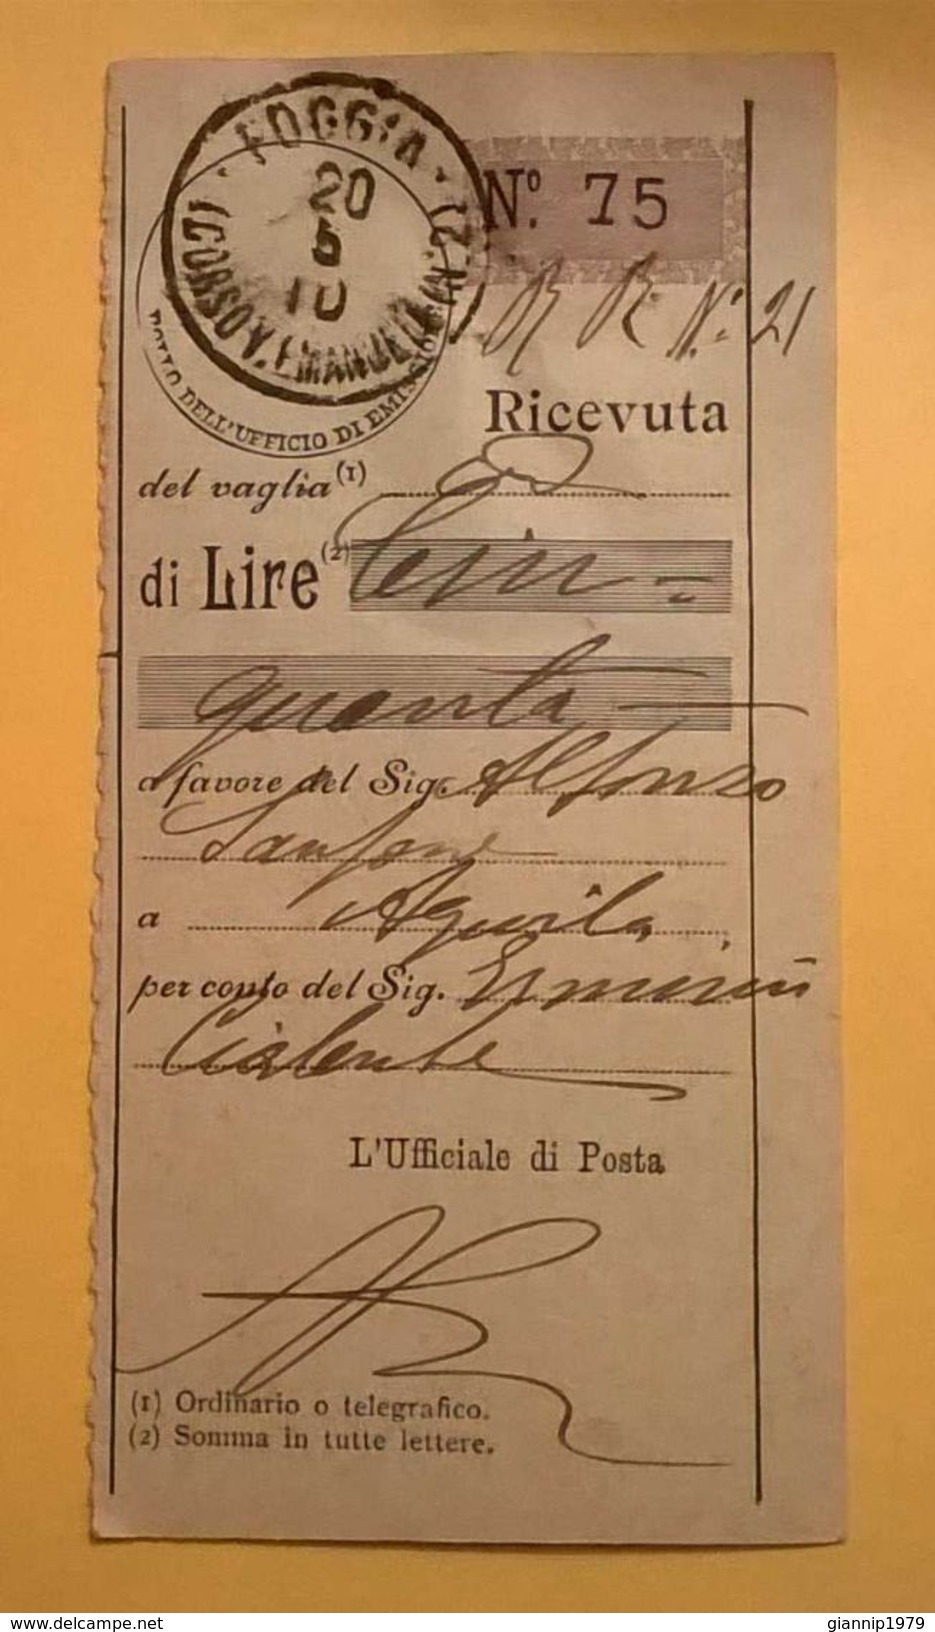 · FOGGIA ·
20
5
10
(CORSO V. EMANUELE) (N. 2)
BOLLO DELL'UFFICIO DI EMISSIONE
N.º 75
N.º 21
Ricevuta
del vaglia (1)
di Lire (2) Cin-
quanta
a favore del Sig. Alfonzo
Sansone
a Aquila
per conto del Sig.
Cialente
L'Ufficiale di Posta
(1) Ordinario o telegrafico.
(2) Somma in tutte lettere.
www.delcampe.net
giannip1979